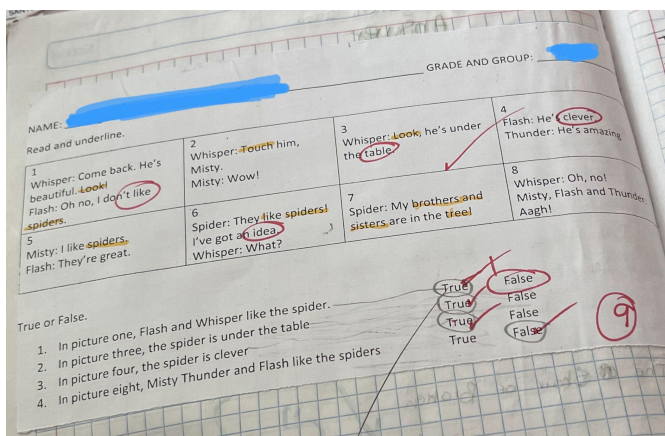 GRADE AND GROUP:
NAME:
Read and underline.
1
Whisper: Come back. He's
beautiful. Look!
Flash: Oh no, I don't like
spiders.
2
Whisper: Touch him,
Misty.
Misty: Wow!
3
Whisper: Look, he's under
the table.
4
Flash: He's clever.
Thunder: He's amazing
5
Misty: I like spiders.
Flash: They're great.
6
Spider: They like spiders!
I've got an idea.
Whisper: What?
7
Spider: My brothers and
sisters are in the tree!
8
Whisper: Oh, no!
Misty, Flash and Thunder.
Aagh!
True or False.
1. In picture one, Flash and Whisper like the spider. True False
2. In picture three, the spider is under the table True False
3. In picture four, the spider is clever True False
4. In picture eight, Misty Thunder and Flash like the spiders True False
9